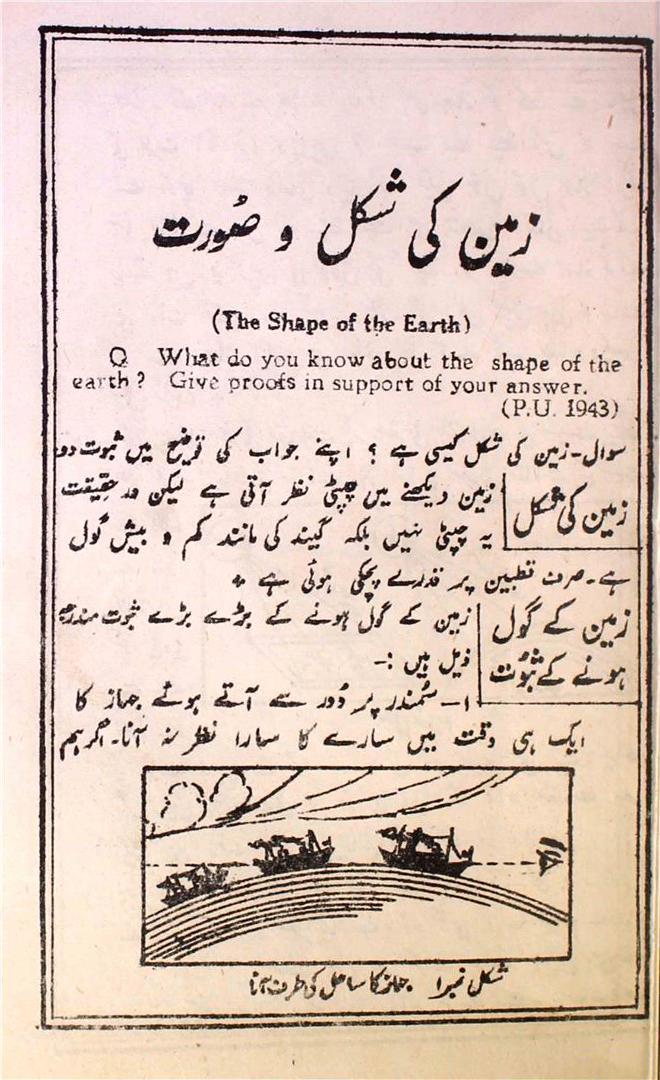 زمین کی شکل و صُورت
(The Shape of the Earth)
Q What do you know about the shape of the
earth ? Give proofs in support of your answer.
(P.U. 1943)
سوال۔ زمین کی شکل کیسی ہے ؟ اپنے جواب کی توضیح میں ثبوت دو
زمین کی شکل
زمین دیکھنے میں چپٹی نظر آتی ہے لیکن در حقیقت
یہ چپٹی نہیں بلکہ گیند کی مانند کم و بیش گول
ہے۔ صرف قطبین پر قدرے پچکی ہوئی ہے
زمین کے گول
ہونے کے ثبُوت
زمین کے گول ہونے کے بڑے بڑے ثبوت مندرجہ
ذیل ہیں :-
۱- سمُندر پر دُور سے آتے ہوئے جہاز کا
ایک ہی وقت میں سارے کا سارا نظر نہ آنا۔ اگر ہم
شکل نمبر۱ جہاز کا ساحل کی طرف آنا